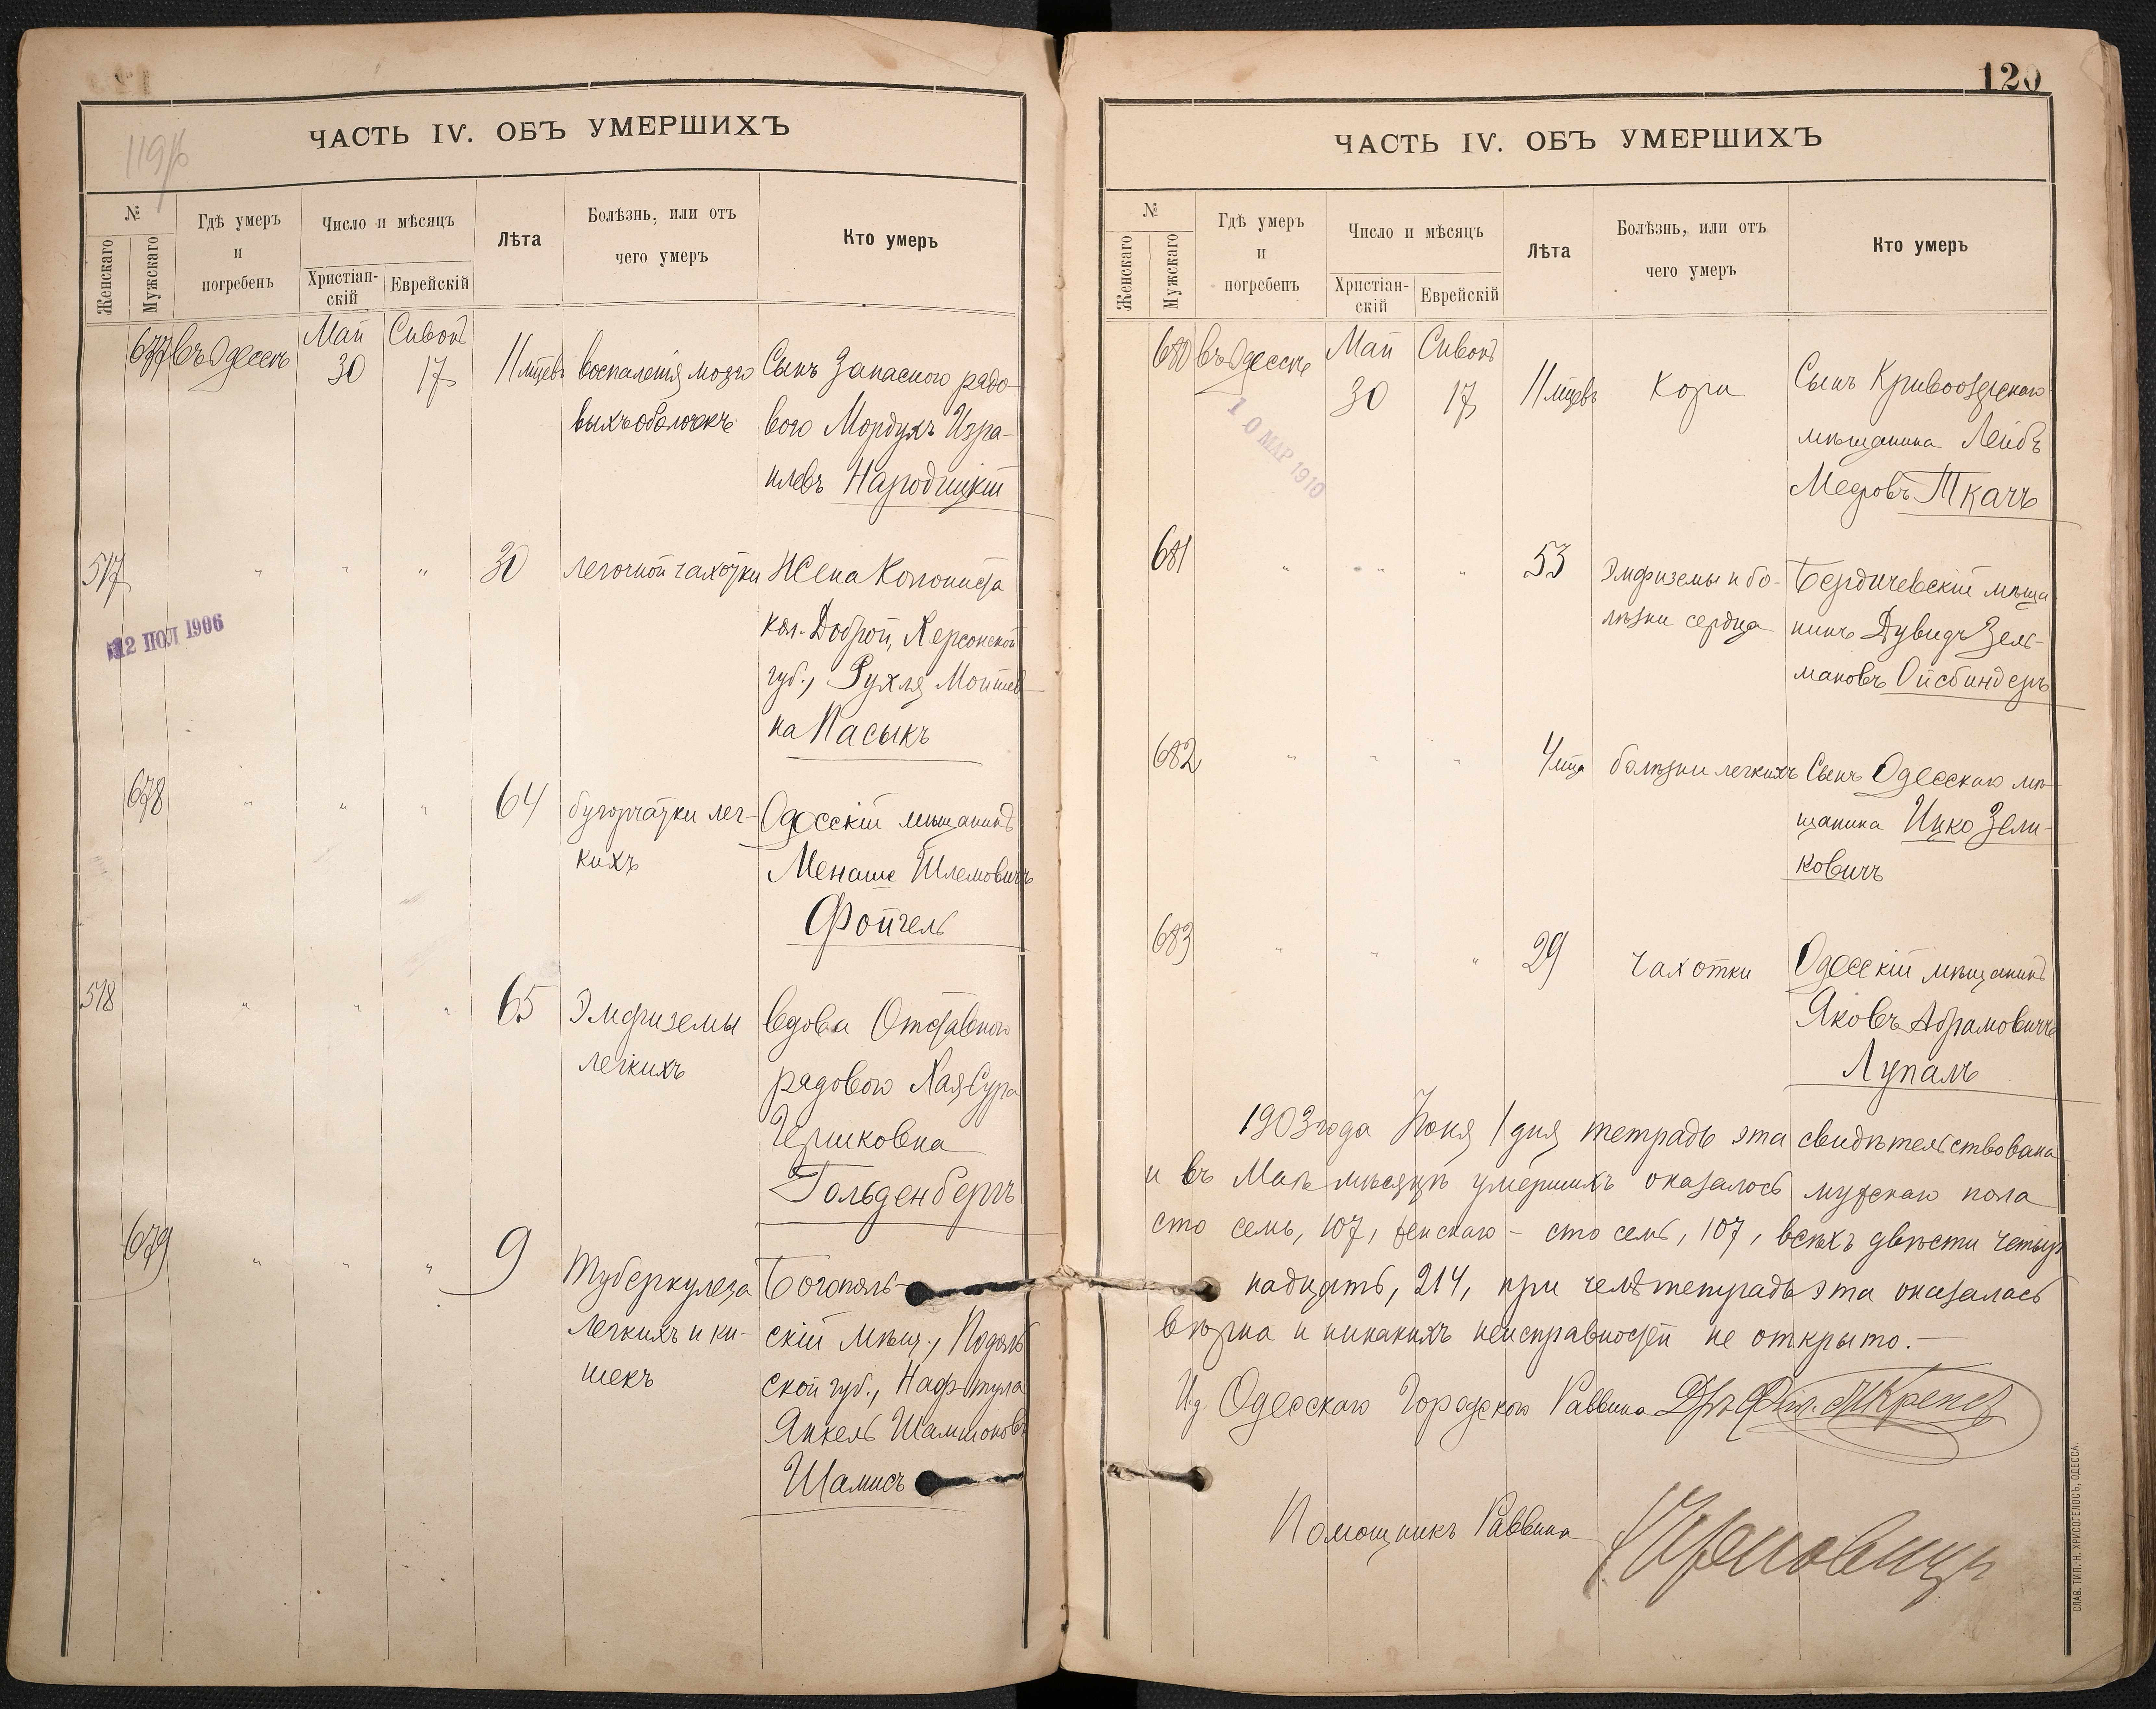 119/б
ЧАСТЬ IV. ОБЪ УМЕРШИХЪ
№
Женскаго
Мужскаго
Гдѣ умеръ
и
погребенъ
Число и мѣсяцъ
Христіан-
скій
Еврейскій
Лѣта
Болѣзнь, или отъ
чего умеръ
Кто умеръ
677 въ Одессѣ Май 30 Сивонъ 17 11 мцевъ воспаленія мозго Сынъ Запасного рядо
выхъ оболочекъ вого Мордухъ Изра-
илевъ Народицкій
517 " " " 30 легочной чахотки Жена Колониста
кол. Доброй, Херсонской
губ., Рухля Мошков
на Пасыкъ
12 ІЮЛ 1906
678 " " " 64 бугорчатки лег- Одесскій мѣщанинъ
кихъ Менаше Шлемовичъ
Фойгель
518 " " " 65 Эмфиземы вдова Отставного
легкихъ рядового Хая-Сура
Гершковна
Гольденбергъ
679 " " " 9 Туберкулеза Богополь-
легкихъ и ки- скій мѣщ., Подоль
шекъ ской губ., Нафтула
Янкель Шамшоновъ
Шамисъ
120
ЧАСТЬ IV. ОБЪ УМЕРШИХЪ
№
Женскаго
Мужскаго
Гдѣ умеръ
и
погребенъ
Число и мѣсяцъ
Христіан-
скій
Еврейскій
Лѣта
Болѣзнь, или отъ
чего умеръ
Кто умеръ
680 въ Одессѣ Май 30 Сивонъ 17 11 мцевъ Кори Сынъ Кривоозерскаго
мѣщанина Лейбъ
Мееровъ Ткачъ
10 МАР 1910
681 " " " 53 Эмфиземы и бо- Бердичевскій мѣща
лѣзни сердца нинъ Дувидъ Зель-
мановъ Ойсбиндеръ
682 " " " 4 мца болѣзни легкихъ Сынъ Одесскаго мѣ
щанина Ицко Зели-
ковичъ
683 " " " 29 чахотки Одесскій мѣщанинъ
Яковъ Абрамовичъ
Лупалъ
1903 года Іюня 1 дня тетрадь эта свидѣтельствована
и въ Маѣ мѣсяцѣ умершихъ оказалось мужскаго пола
сто семь, 107, женскаго - сто семь, 107, всѣхъ двѣсти четыр
надцать, 214, при чемъ тетрадь эта оказалась
вѣрна и никакихъ неисправностей не открыто. -
И д Одесскаго Городского Раввина Д-ръ Фил. Крепсъ
Помощникъ Раввина
СЛАВ. ТИП. Н. ХРИСОГЕЛОСЪ, ОДЕССА.